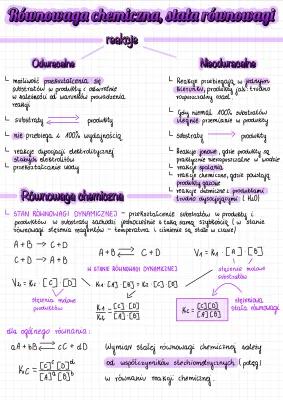 Równowaga chemiczna, stała równowagi
reakcje
Odwracalne
Nieodwracalne
możliwość przekształcania się
substratów w produkty i odwrotnie
w zależności od warunków prowadzenia
reakcji
substraty ⇄ produkty
nie przebiega z 100% wydajnością
reakcje dysocjacji elektrolitycznej
słabych elektrolitów
przekształcanie wody
Reakcje przebiegają w jednym
kierunku, produkty jak: trudno
rozpuszczalny osad
Gdy niemal 100% substratów
ulegnie przemianie w produkty
substraty → produkty
Reakcje jonowe, gdzie produkty są
praktycznie nierozpuszczalne w wodzie
reakcje spalania
reakcje chemiczne, gdzie powstają
produkty gazowe
reakcje chemiczne z produktami
trudno dysocjującymi (H₂O)
Równowaga chemiczna
STAN RÓWNOWAGI DYNAMICZNEJ - przekształcanie substratów w produkty i
produktów w substraty zachodzi jednocześnie z taką samą szybkością (w stanie
równowagi stężenia reagentów - temperatura i ciśnienie są stałe w czasie)
A+B → C+D
C+D → A+B
A+B ⇄ C+D
V₁ = k₁ · [A] · [B]
W STANIE RÓWNOWAGI DYNAMICZNEJ
stężenie molowe
substratów
V₂ = k₂ · [C] · [D]
k₁ · [A] · [B] = k₂ · [C] · [D]
stężenia molowe
produktów
k₁/k₂ = [C]·[D]/[A]·[B]
Kc = [C][D]/[A][B]
stężeniowa
stała równowagi
dla ogólnego równania:
aA + bB ⇄ cC + dD
Kc = [C]ᶜ[D]ᵈ/[A]ᵃ[B]ᵇ
Wymiar stałej równowagi chemicznej zależy
od współczynników stechiometrycznych (potęgi)
w równaniu reakcji chemicznej.